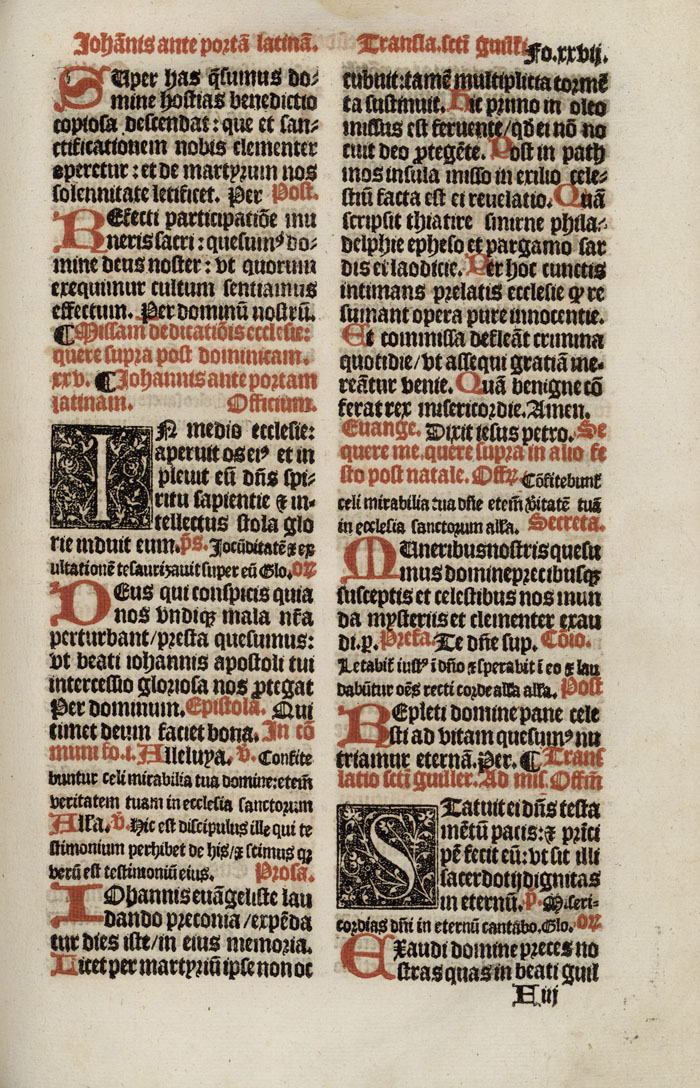 Johānis ante portā latinā. Transla. scti guill̄i Fo.xxvij.
Super has q̄sumus do⸗
mine hostias benedictio
copiosa descendat: que et san⸗
ctificationem nobis clementer
operetur: et de martyrum nos
solennitate letificet. Per Post.
Refecti participatiōe mu
neris sacri: quesumꝰ do⸗
mine deus noster: vt quorum
exequimur cultum sentiamus
effectum. Per dominū nostrū.
¶ Missam dedicatiōis ecclesie:
quere supra post dominicam.
xxv. ¶ Johannis ante portam
latinam. Officium.
IN medio ecclesie:
aperuit os eiꝰ et in
pleuit eū dn̄s spi⸗
ritu sapientie ⁊ in⸗
tellectus stola glo
rie induit eum. ps. Jocūditatē ⁊ ex
ultationē tesaurizauit super eū Glo. or̄
Deus qui conspicis quia
nos vndiqꝫ mala nr̄a
perturbant/presta quesumus:
vt beati iohannis apostoli tui
intercessio gloriosa nos ꝓtegat
Per dominum. Epistola. Qui
timet deum faciet bona. In cō
muni fo.i. Alleluya. v. Confite
buntur celi mirabilia tua domine: etem̄
veritatem tuam in ecclesia sanctorum
Alla. v. Hic est discipulus ille qui te
stimonium perhibet de his/⁊ scimus qꝛ
verū est testimoniū eius. Prosa.
Iohannis euāgeliste lau
dando preconia/expēda
tur dies iste/in eius memoria.
Licet per martyriū ipse non oc
cubuit: tamē multiplicia tormē
ta sustinuit. Hic primo in oleo
missus est feruente/qd̄ ei nō no
cuit deo ꝓtegēte. Post in path
mos insula misso in exilio cele⸗
stiū facta est ei reuelatio. Quā
scripsit thiatire smirne phila⸗
delphie epheso et pargamo sar
dis ei laodicie. Per hoc cunctis
intimans prelatis ecclesie ꝙ re
sumant opera pure innocentie.
Et commissa defleāt crimina
quotidie/vt assequi gratiā me⸗
reātur venie. Quā benigne cō
ferat rex misericordie. Amen.
Euange. Dixit iesus petro. Se
quere me. quere supra in alio fe
sto post natale. Offꝝ Cōfitebunt̄
celi mirabilia tua dn̄e etem̄ v̄itatē tuā
in ecclesia sanctorum alla. Secreta.
Muneribus nostris quesu
mus domine precibusqꝫ
susceptis et celestibus nos mun
da mysteriis et clementer exau
di. p. Prefa. Te dn̄e sup. Cōio.
Letabit̄ iustꝰ ī dn̄o ⁊ sperabit ī eo ⁊ lau
dabūtur oēs recti corde alla alla. Post
Repleti domine pane cele
sti ad vitam quesumꝰ nu
triamur eternā. Per. ¶ Trans
latio scti guiller. Ad mis. Offm̄
Statuit ei dn̄s testa
mētū pacis: ⁊ prīci
pē fecit eū: vt sit illi
sacerdotij dignitas
in eternū. p. Miseri⸗
cordias dn̄i in eternū cantabo. Glo. or̄
Exaudi domine preces no
stras quas in beati guil
E iij